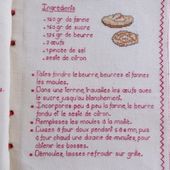 Ingrédients
- 150 gr de farine
- 150 gr de sucre
- 125 gr de beurre
- 3 œufs
- 1 pincée de sel
- zeste de citron
Faites fondre le beurre, beurrez et farinez
les moules.
Dans une terrine, travaillez les œufs avec
le sucre jusqu'au blanchiment.
Incorporez peu à peu la farine, le beurre
fondu et le zeste de citron.
Remplissez les moules à la moitié.
Cuisez à four doux pendant mn, puis
à four chaud une dizaine de minutes, pour
obtenir les bosses.
Démoulez, laissez refroidir sur grille.